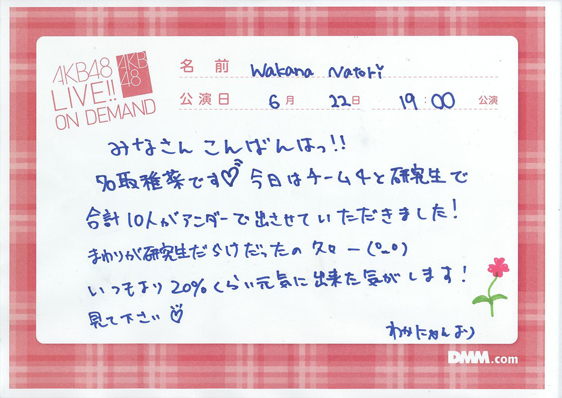 AKB48
LIVE!!
ON DEMAND
AKB
48
名前 Wakana Natori
公演日 6月 22日 19:00 公演
みなさん こんばんはっ!!
名取稚菜です♡ 今日はチーム4と研究生で
合計10人がアンダーで出させていただきました!
まわりが研究生だらけだったの久々ー(º_º)
いつもより20%くらい元気に出来た気がします!
見て下さい♡
わかにゃんより
DMM.com